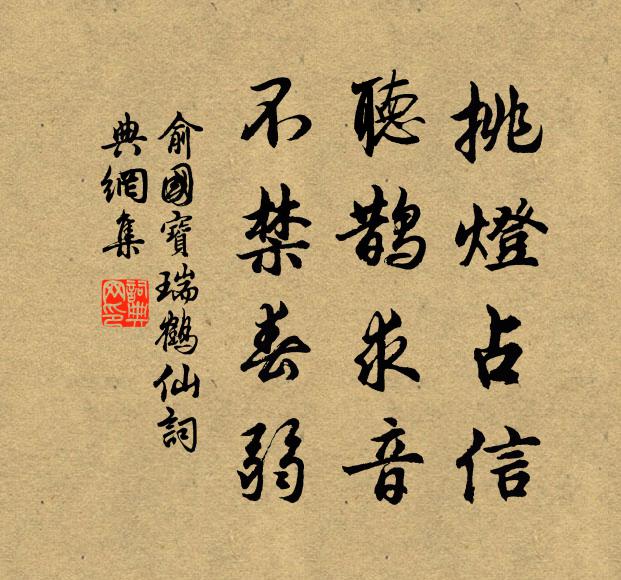 挑燈占信
聽鵲求音
不禁春弱
俞國寶瑞鶴仙詞
典網集
詞典網印